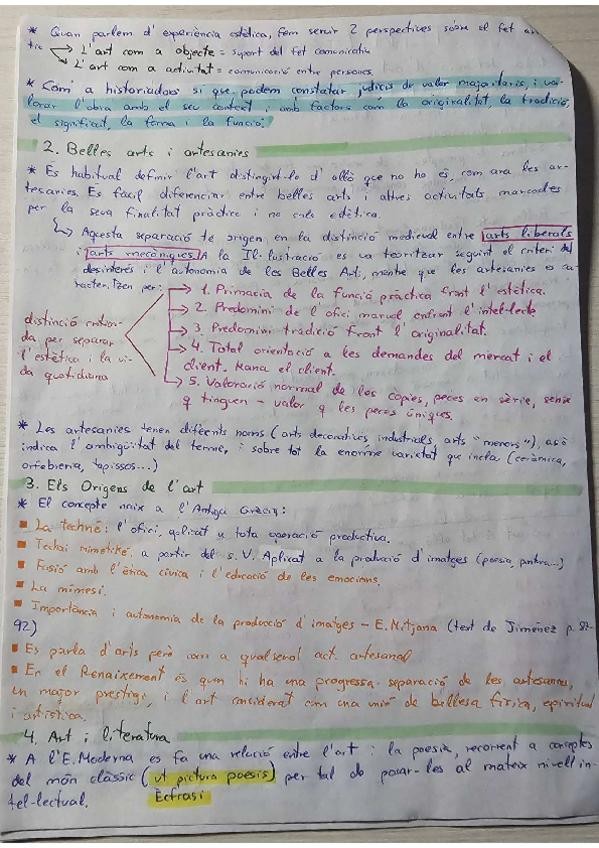 * Quan parlem d'experiència estètica, fem servir 2 perspectives sobre el fet ar-
tístic → L'art com a objecte = suport del fet comunicatiu
→ L'art com a activitat = comunicació entre persones.
* Com a historiadors si que podem constatar judicis de valor majoritaris, i va-
lorar l'obra amb el seu context i amb factors com la originalitat, la tradició,
el significat, la forma i la funció.
2. Belles arts i artesanies
* És habitual definir l'art distingint-lo d'allò que no ho és, com ara les ar-
tesanies. És fàcil diferenciar entre belles arts i altres activitats marcades
per la seva finalitat pràctica i no sols estètica.
↳ Aquesta separació té origen en la distinció medieval entre arts liberals
i arts mecàniques. A la Il·lustració es va teoritzar seguint el criteri del
desinterés i l'autonomia de les Belles Arts, mentre que les artesanies es ca-
racteritzen per: → 1. Primacia de la funció pràctica front l'estètica.
→ 2. Predomini de l'ofici manual enfront l'intel·lecte
→ 3. Predomini tradició front l'originalitat.
→ 4. Total orientació a les demandes del mercat i el
client. Mana el client.
→ 5. Valoració normal de les còpies, peces en sèrie, sense
q tinguen - valor q les peces úniques.
distinció
da per separar
l'estètica i la vi-
da quotidiana
* Les artesanies tenen diferents noms (arts decoratives, industrials, arts "menors"), açò
indica l'ambigüitat del terme, i sobre tot la enorme varietat que inclou (ceràmica,
orfebreria, tapissos...)
3. Els Orígens de l'art
* El concepte naix a l'Antiga Grècia:
■ La techné: l'ofici, aplicat a tota operació productiva.
■ Technai mimetiké, a partir del s. V. Aplicat a la producció d'imatges (poesia, pintura...)
■ Fusió amb l'ètica cívica i l'educació de les emocions.
■ La mímesi.
■ Importància i autonomia de la producció d'imatges - E. Mitjana (text de Jiménez p. 87-
92)
■ Es parla d'arts però com a qualsevol act. artesanal
■ En el Renaixement és quan hi ha una progressa separació de les artesanies,
un major prestigi, i l'art considerat com una unió de bellesa física, espiritual
i artística.
4. Art i literatura
* A l'E. Moderna es fa una relació entre l'art i la poesia, recorrent a conceptes
del món clàssic (ut pictura poesis) per tal de posar-les al mateix nivell in-
tel·lectual. Ècfrasi